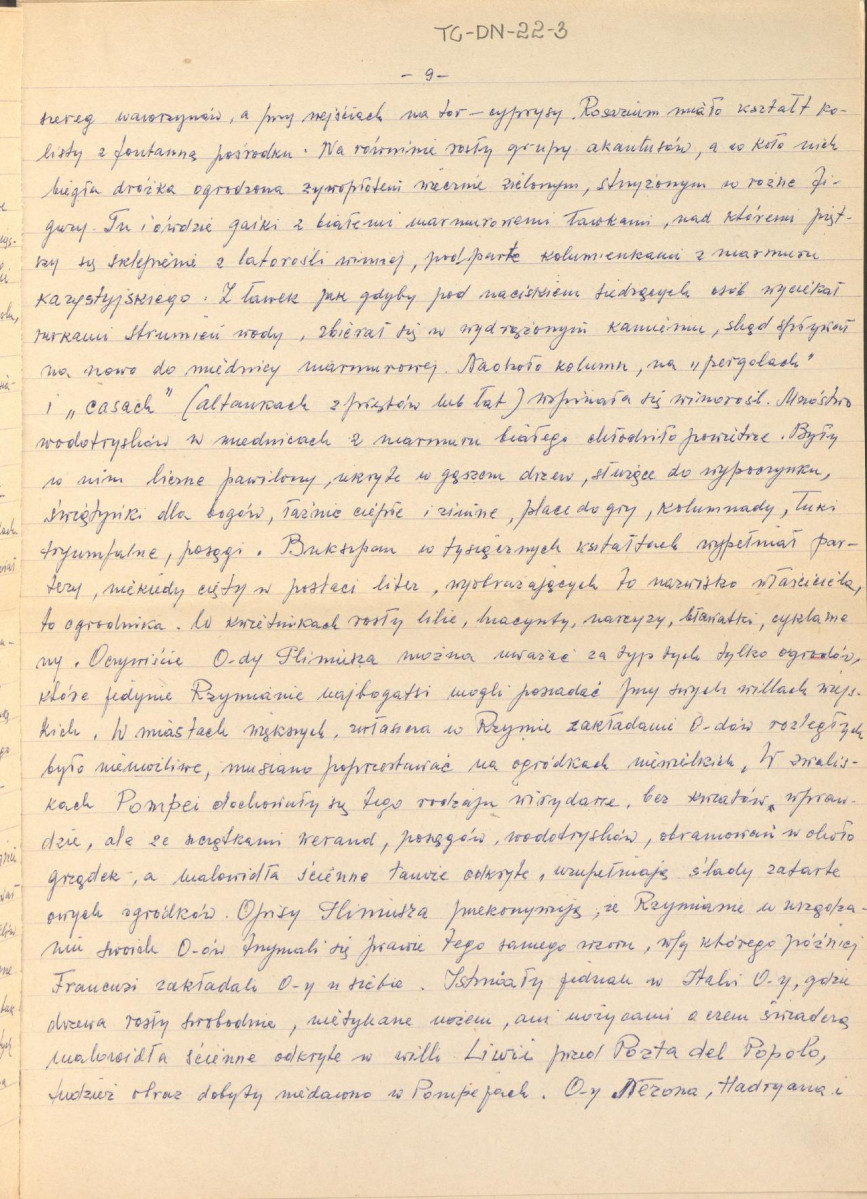 TC-DN-22-3
- 9 -
szereg wawrzynów, a przy wejściach na tor — cyprysy. Rosarium miało kształt ko-
listy z fontanną pośrodku. Na równinie rosły grupy akantusów, a w koło nich
biegła dróżka ogrodzona żywopłotem wiecznie zielonym, strzyżonym w rożne fi-
gury. Tu i ówdzie gaiki z białemi marmurowemi ławkami, nad któremi pięt-
rzy się sklepienie z latorośli winnej, podparte kolumienkami z marmuru
karystyjskiego. Z ławek jak gdyby pod naciskiem siedzących osób wyciekał
rurkami strumień wody, zbierał się w wydrążonym kamieniu, skąd spływał
na nowo do miednicy marmurowej. Naokoło kolumn, na „pergolach"
i „casach" (altankach z prętów lub łat) wspinała się winorośl. Mnóstwo
wodotrysków w miednicach z marmuru białego chłodziło powietrze. Były
w nim liczne pawilony, ukryte w gąszczu drzew, służące do wypoczynku,
świątyńki dla bogów, łaźnie ciepłe i zimne, place do gry, kolumnady, łuki
tryumfalne, posągi. Bukszpan w tysięcznych kształtach wypełniał par-
tery, niekiedy cięty w postaci liter, wyobrażających to nazwisko właściciela,
to ogrodnika. W kwietnikach rosły lilie, hiacynty, narcyzy, bławatki, cyklame
ny. Oczywiście O-dy Pliniusza można uważać za typ tych tylko ogrodów,
które jedynie Rzymianie najbogatsi mogli posiadać przy swych willach wiejs-
kich. W miastach większych, zwłaszcza w Rzymie zakładanie O-dów rozległych
było niemożliwe, musiano poprzestawać na ogródkach niewielkich. W zwalis-
kach Pompei dochowały się tego rodzaju wirydarze, bez kwiatów wpraw-
dzie, ale ze szczątkami werand, posągów, wodotrysków, obramowań w około
grządek, a malowidła ścienne tamże odkryte, uzupełniają ślady zatarte
owych ogródków. Opisy Pliniusza przekonywują, że Rzymianie w urządza-
niu swoich O-ów trzymali się prawie tego samego wzoru, wg którego później
Francuzi zakładali O-y u siebie. Istniały jednak w Italii O-y, gdzie
drzewa rosły swobodnie, nietykane nożem, ani nożycami o czem świadczą
malowidła ścienne odkryte w willi Liwii przed Porta del Popolo,
tudzież obraz dobyty niedawno w Pompejach. O-y Nerona, Hadryana i